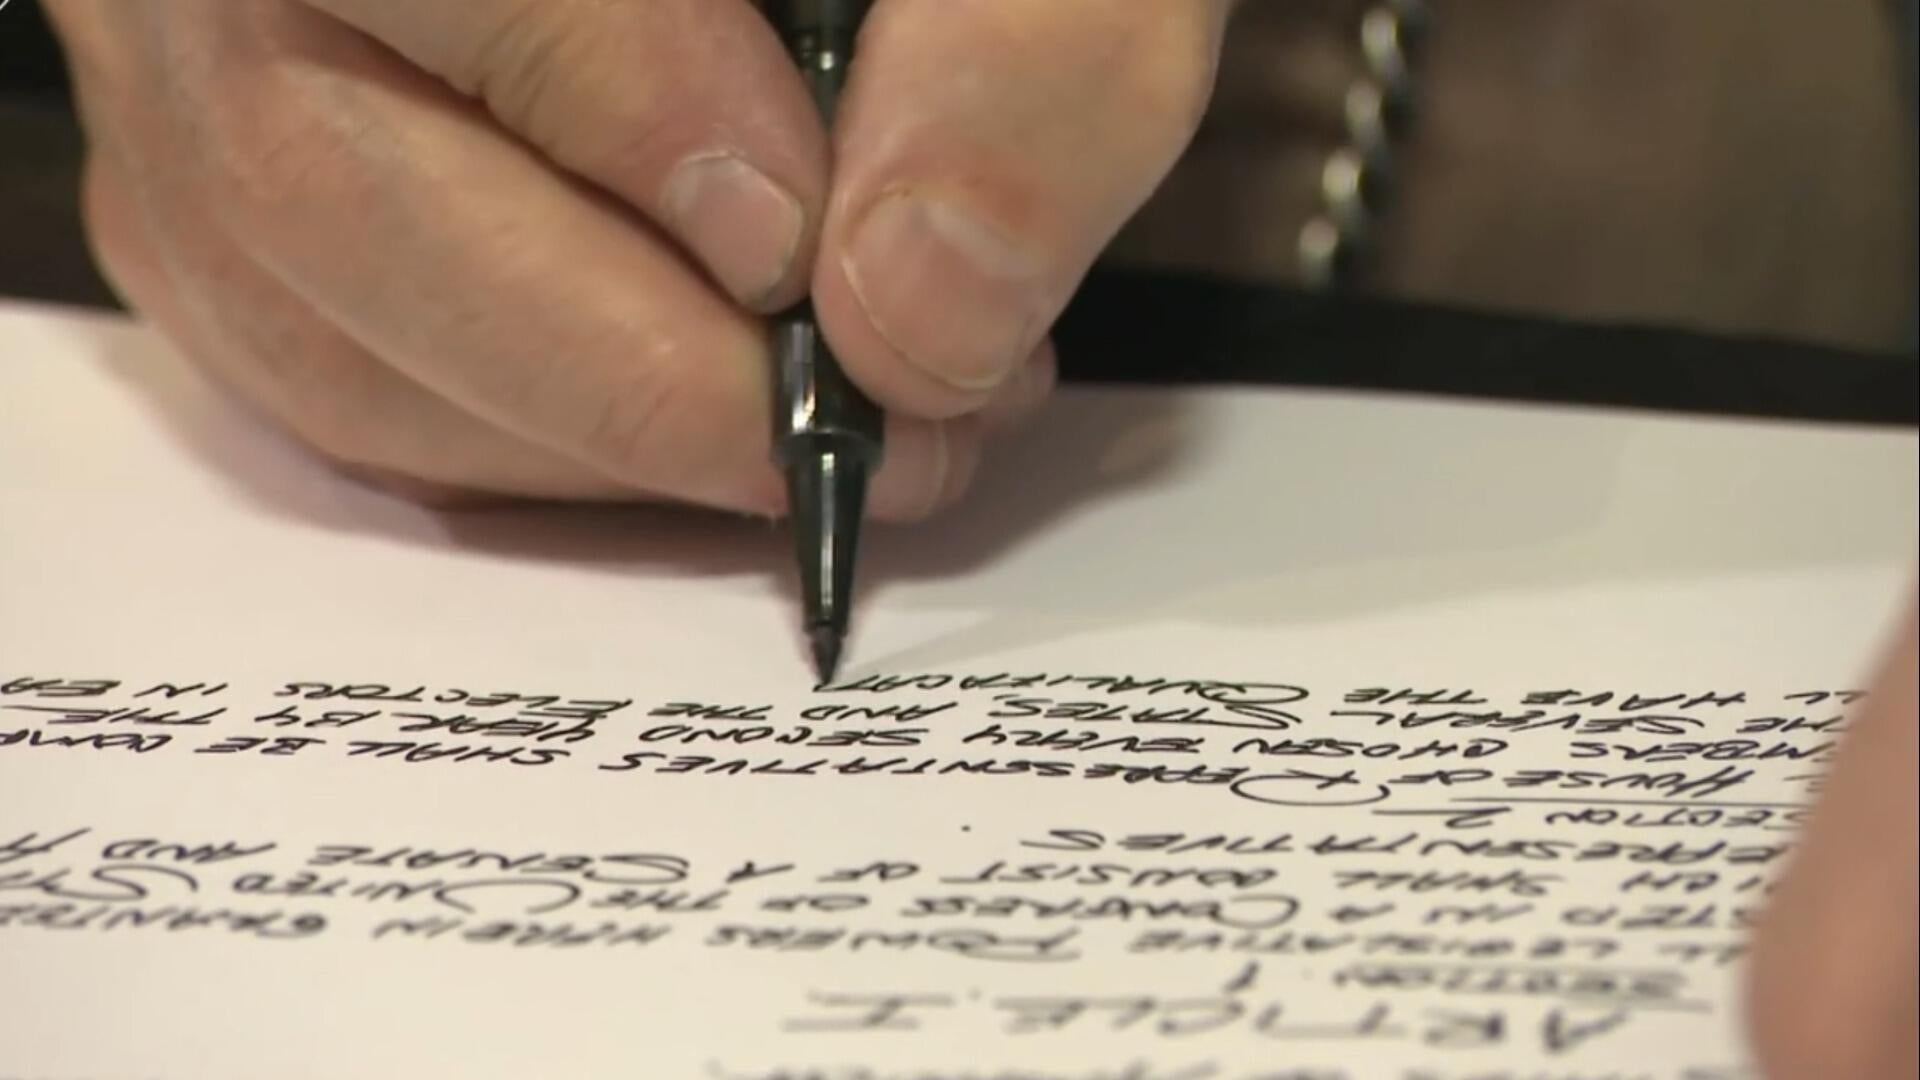 OF AMERICA.
ARTICLE I
SECTION 1
LL LEGISLATIVE POWERS HEREIN GRANTED
STED IN A CONGRESS OF THE UNITED STA
ICH SHALL CONSIST OF A SENATE AND A
EPRESENTATIVES.
SECTION 2
HOUSE OF REPRESENTATIVES SHALL BE COMP
MBERS CHOSEN EVERY SECOND YEAR BY THE
HE SEVERAL STATES, AND THE ELECTORS IN EA
LL HAVE THE QUALIFACAT